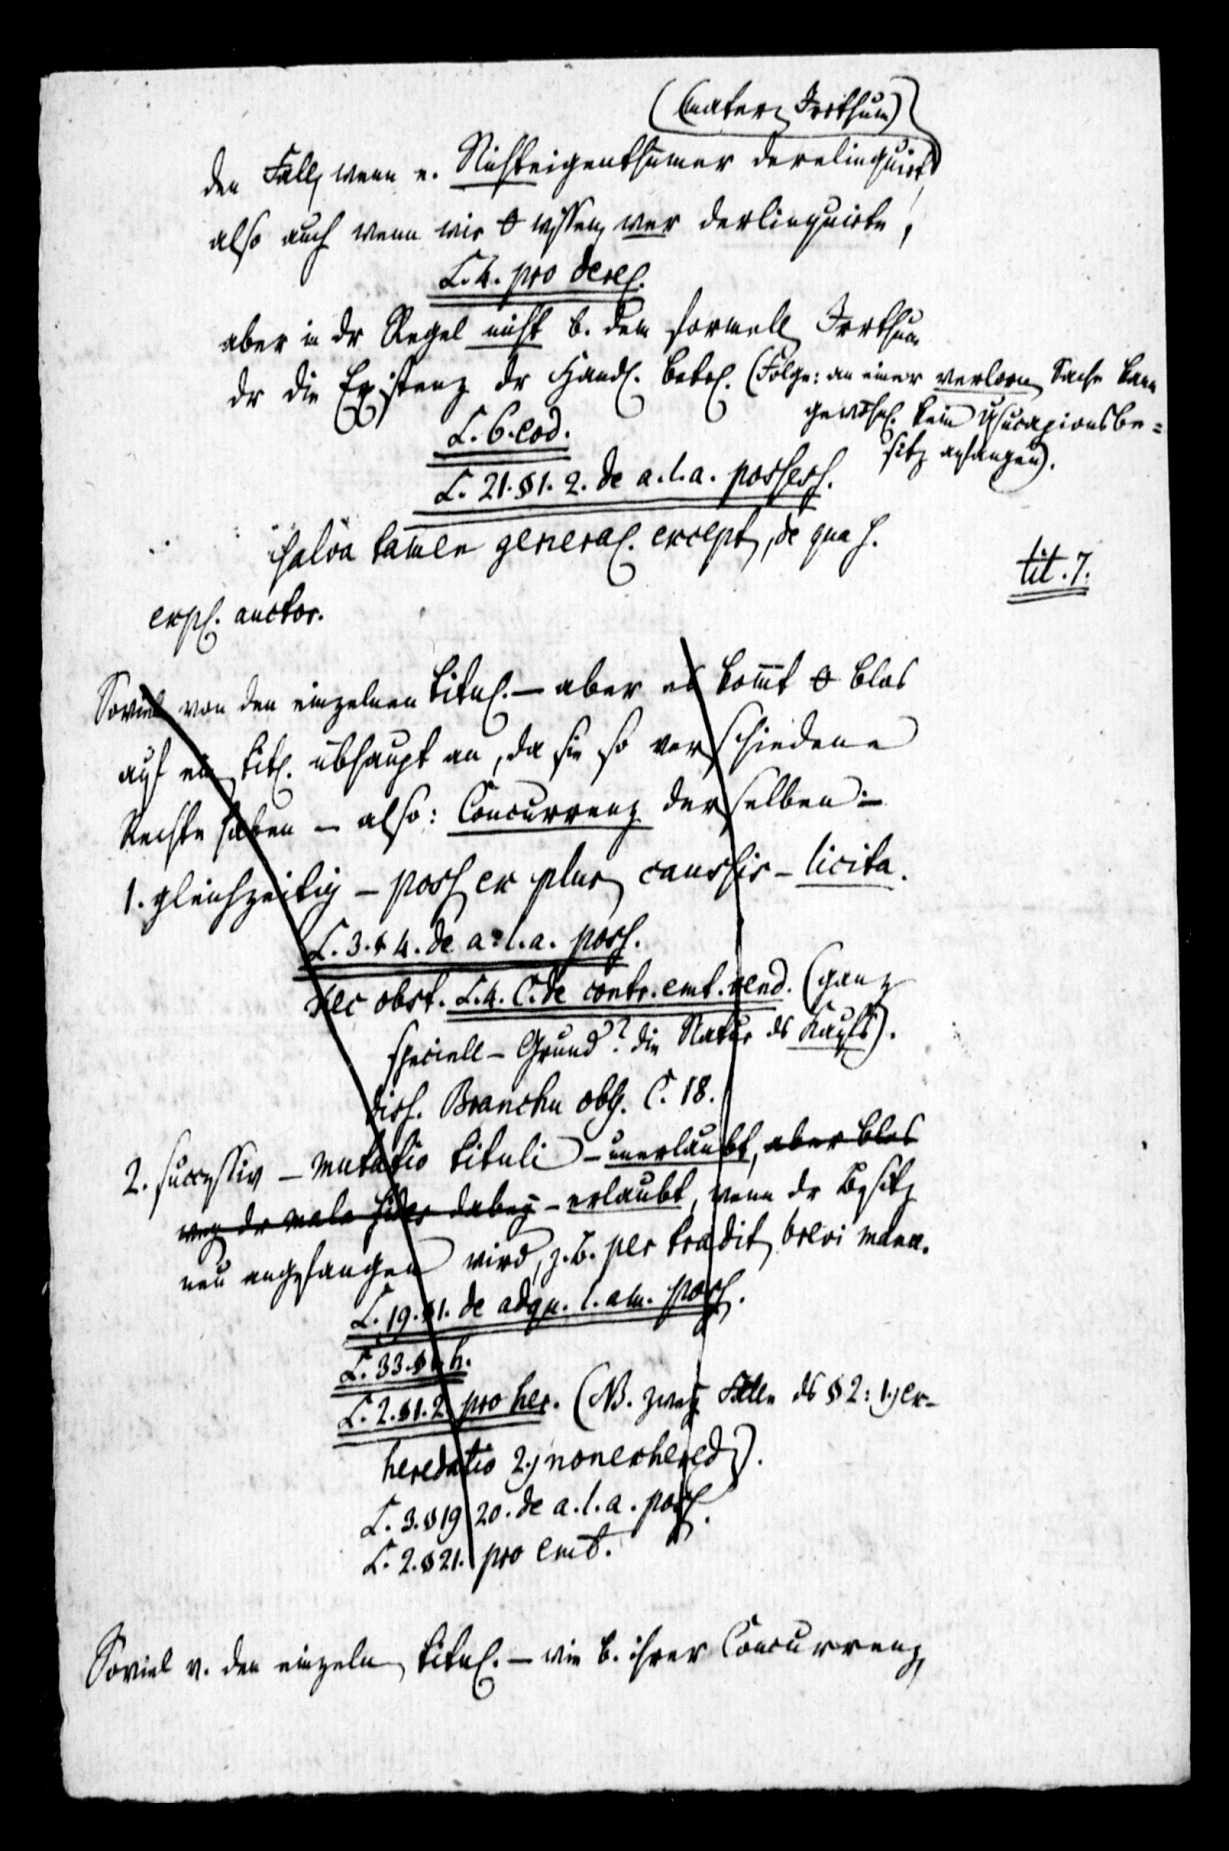 (mater Irrthum)
den Fall, wenn e. Nichteigenthümer derelinquirt,
also auch wenn wir wissen, wer derlinquirte,
L. 4. pro derel.
aber in dr Regel nicht b. dem formell Irrthum
dr die Existenz dr Handl. betr. (Folge: an einer verlorn Sache kann
gewöhl. kein Usucapionsbe=
sitz anfangen).
L. 6. eod.
L. 21. §1. 2. de a. l. a. possess.
salva tamen general. except, de qua h.
tit. 7.
expl. auctor.
Soviel von den einzelnen titul. – aber es kom̄t blos
auf ein tit. übhaupt an, da sie so verschiedene
Rechte haben – also: Concurrenz derselben:–
1. gleichzeitig – poss ex plur caussis – licita.
L. 3. § 4. de a. l. a. poss.
nec obst. L. 4. C. de contr. emt. vend. (ganz
speciell – Grund? die Natur ds Kaufs).
diss. Branchu obs. C. 18.
2. successiv – mutatio tituli – unerlaubt, aber blos
weg dr mala fides dabey – erlaubt, wenn dr Besitz
neu angefangen wird, z. B. per tradit brevi manu.
L. 19. §1. de adqu. l. am. poss.
L. 33. §1. h.
L. 2. §1. 2. pro her. (NB. zwey Fälle ds § 2: 1.) ex-
heredatio 2.) non exhered).
L. 3. § 19 20. de a. l. a. poss.
L. 2. § 21. pro emt.
Soviel v. den einzeln titul. – wie b. ihrer Concurrenz,